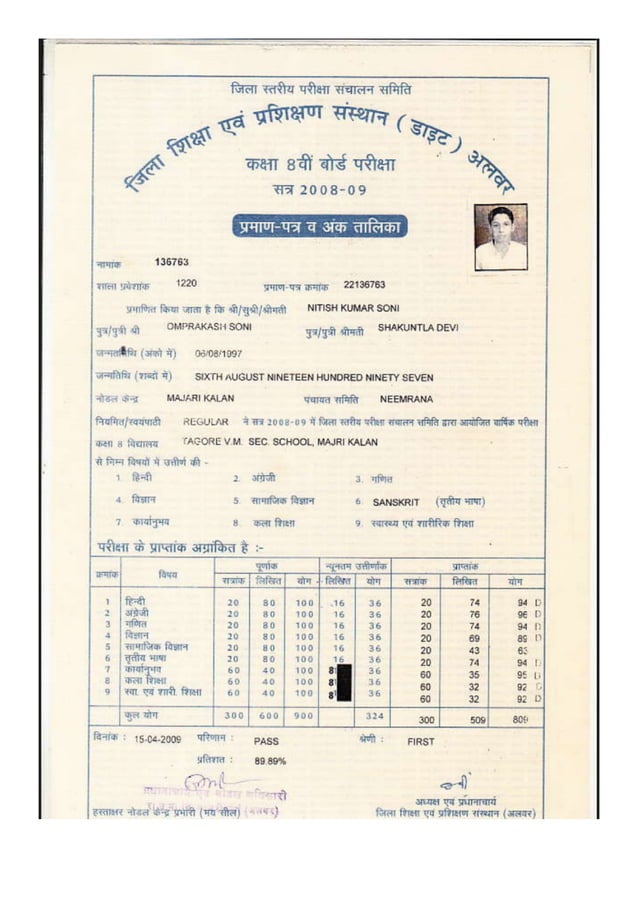 जिला स्तरीय परीक्षा संचालन समिति
जिला शिक्षा एवं प्रशिक्षण संस्थान ( डाइट ) अलवर
कक्षा 8वीं बोर्ड परीक्षा
सत्र 2008-09
प्रमाण-पत्र व अंक तालिका
नामांक 136763
शाला प्रवेशांक 1220 प्रमाण-पत्र क्रमांक 22136763
प्रमाणित किया जाता है कि श्री/सुश्री/श्रीमती NITISH KUMAR SONI
पुत्र/पुत्री श्री OMPRAKASH SONI पुत्र/पुत्री श्रीमती SHAKUNTLA DEVI
जन्मतिथि (अंको में) 06/08/1997
जन्मतिथि (शब्दों में) SIXTH AUGUST NINETEEN HUNDRED NINETY SEVEN
नोडल केन्द्र MAJARI KALAN पंचायत समिति NEEMRANA
नियमित/स्वयंपाठी REGULAR ने सत्र 2008-09 में जिला स्तरीय परीक्षा संचालन समिति द्वारा आयोजित वार्षिक परीक्षा
कक्षा 8 विद्यालय TAGORE V.M. SEC. SCHOOL, MAJRI KALAN
से निम्न विषयों में उत्तीर्ण की -
1. हिन्दी 2. अंग्रेजी 3. गणित
4. विज्ञान 5. सामाजिक विज्ञान 6. SANSKRIT (तृतीय भाषा)
7. कार्यानुभव 8. कला शिक्षा 9. स्वास्थ्य एवं शारीरिक शिक्षा
परीक्षा के प्राप्तांक अग्रांकित है :-
क्रमांक विषय पूर्णांक न्यूनतम उत्तीर्णांक प्राप्तांक
सत्रांक लिखित योग लिखित योग सत्रांक लिखित योग
1 हिन्दी 20 80 100 16 36 20 74 94 D
2 अंग्रेजी 20 80 100 16 36 20 76 96 D
3 गणित 20 80 100 16 36 20 74 94 D
4 विज्ञान 20 80 100 16 36 20 69 89 D
5 सामाजिक विज्ञान 20 80 100 16 36 20 43 63
6 तृतीय भाषा 20 80 100 16 36 20 74 94 D
7 कार्यानुभव 60 40 100 8 36 60 35 95 D
8 कला शिक्षा 60 40 100 8 36 60 32 92 D
9 स्वा. एवं शारी. शिक्षा 60 40 100 8 36 60 32 92 D
कुल योग 300 600 900 324 300 509 809
दिनांक : 15-04-2009 परिणाम : PASS श्रेणी : FIRST
प्रतिशत : 89.89%
अध्यक्ष एवं प्रधानाचार्य
हस्ताक्षर नोडल केन्द्र प्रभारी (मय सील) जिला शिक्षा एवं प्रशिक्षण संस्थान (अलवर)